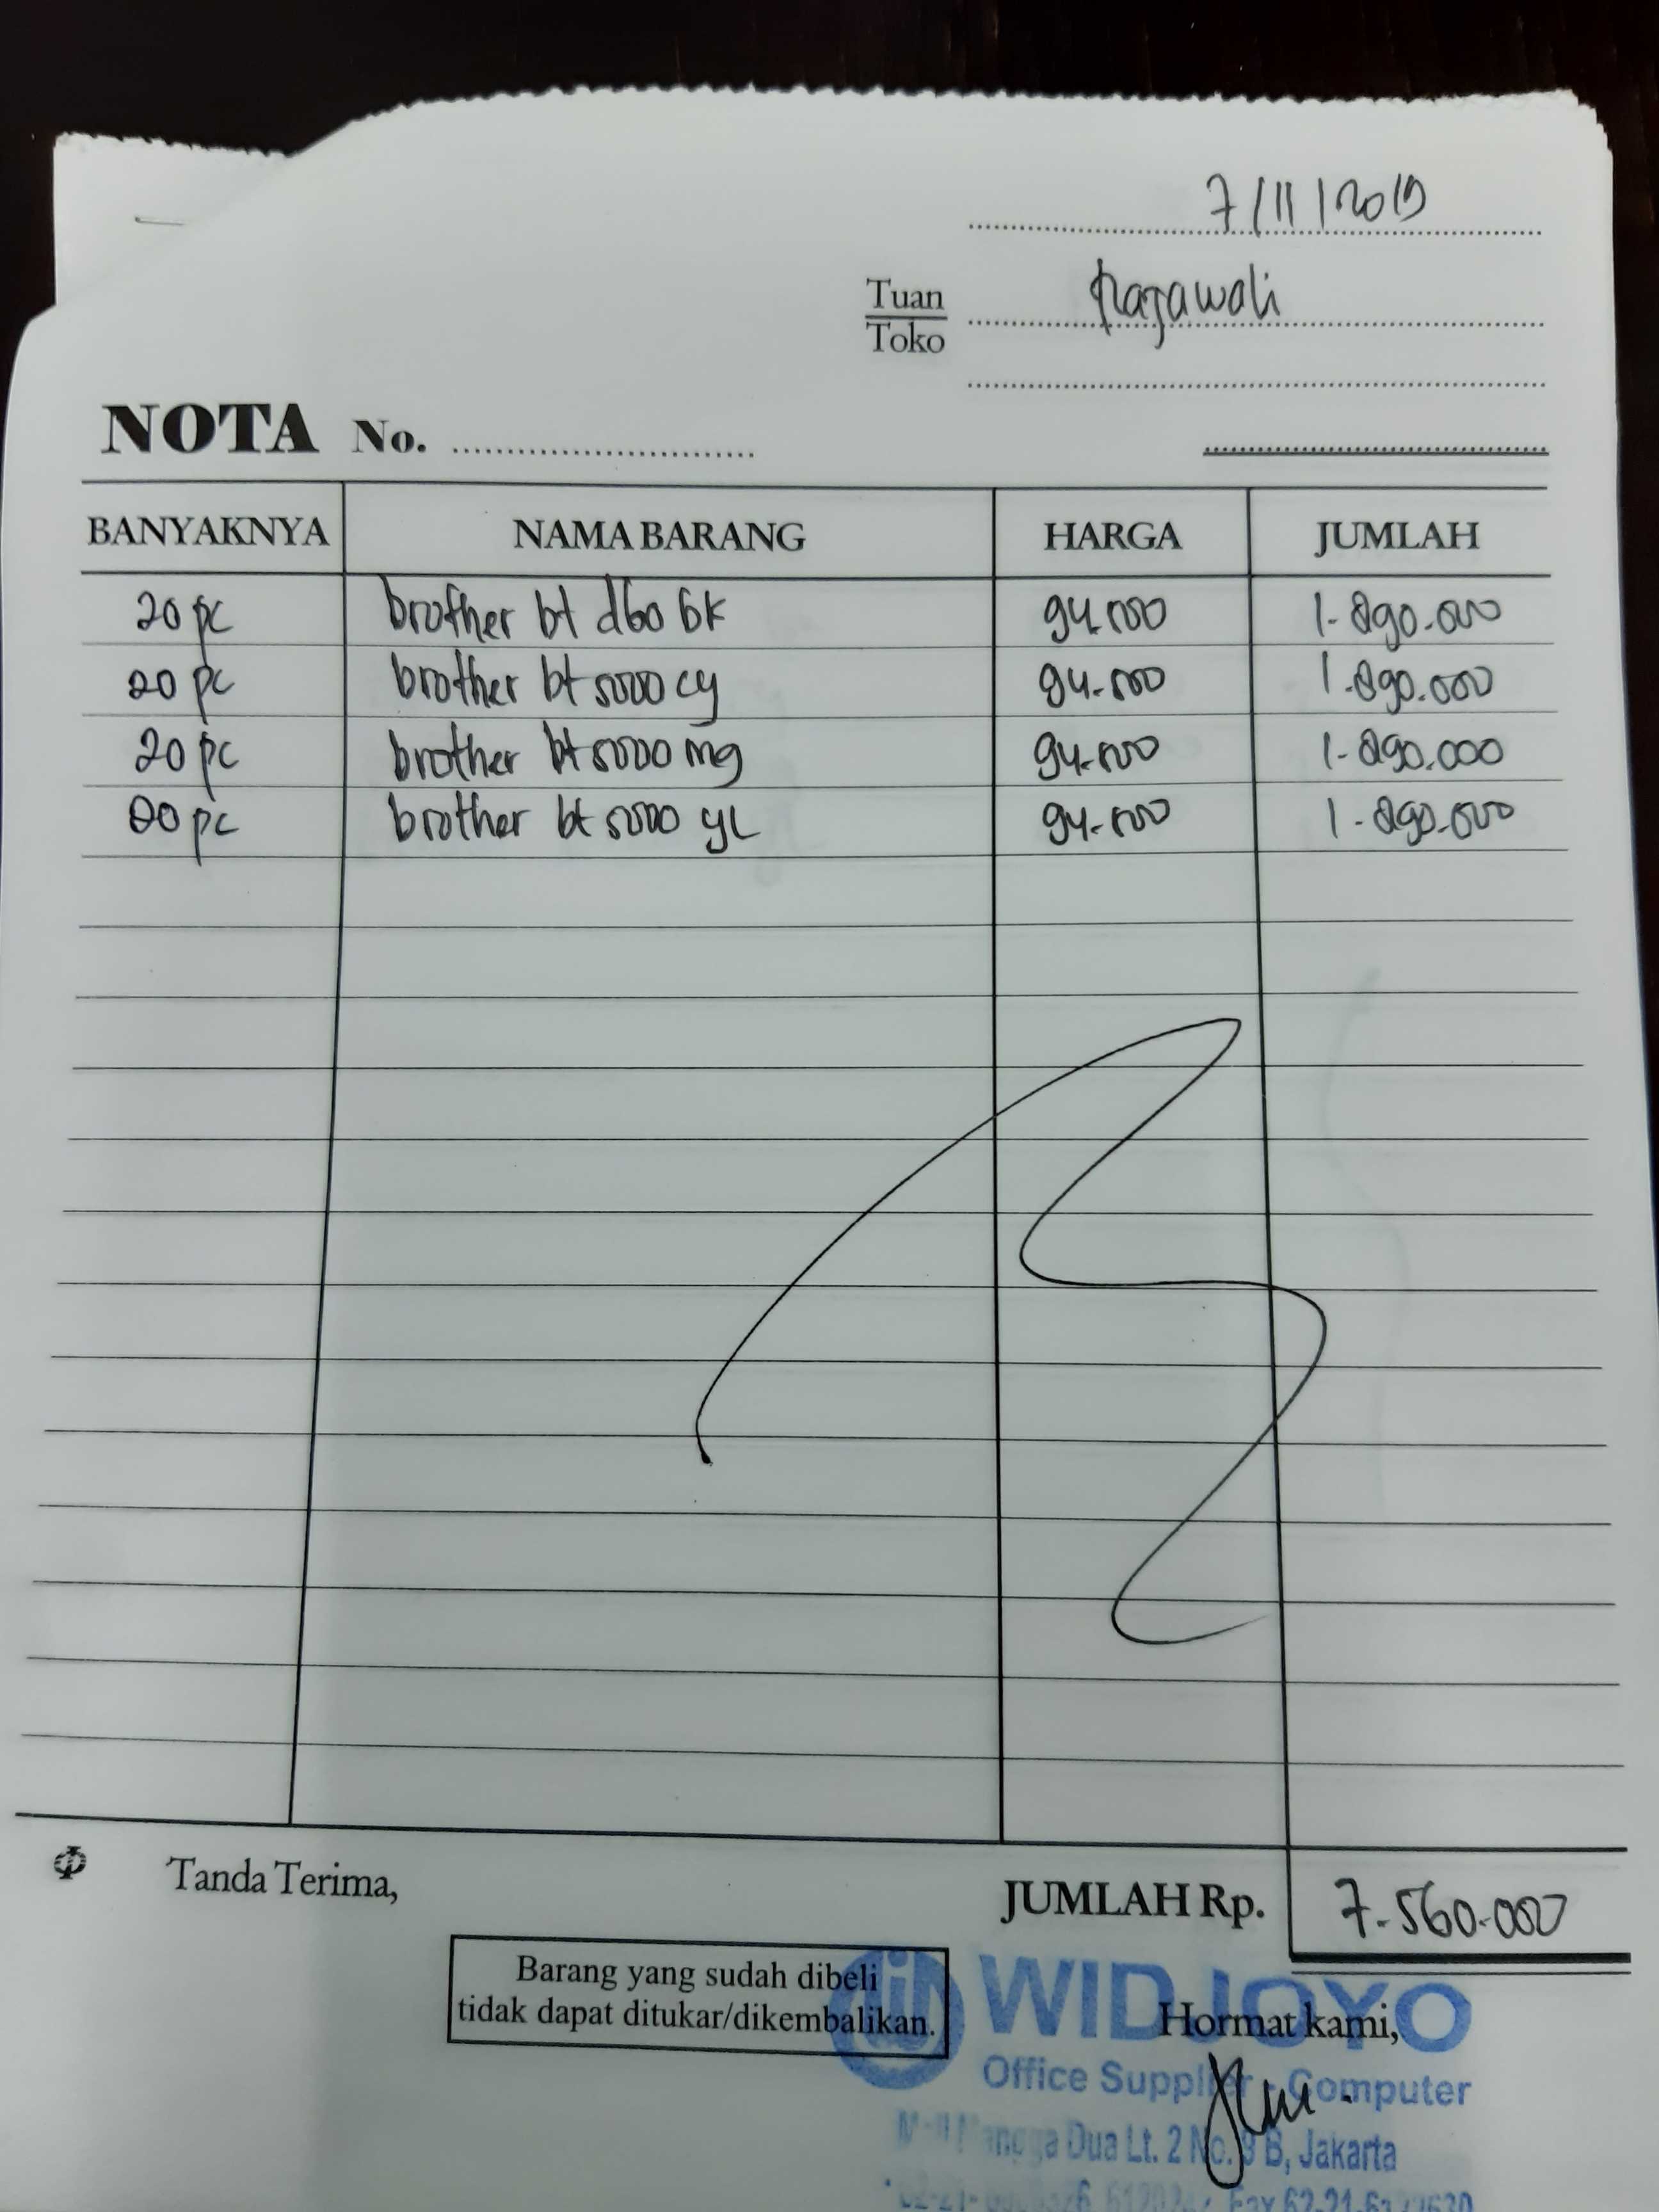 7/11/2019
Tuan
Toko
Rajawali
NOTA No.
BANYAKNYA NAMA BARANG HARGA JUMLAH
20 pc brother bt d60 bk 94.500 1.890.000
20 pc brother bt 5000 cy 94.500 1.890.000
20 pc brother bt 5000 mg 94.500 1.890.000
20 pc brother bt 5000 yL 94.500 1.890.000
Tanda Terima,
JUMLAH Rp. 7.560.000
Barang yang sudah dibeli
tidak dapat ditukar/dikembalikan.
WIDJOYO
Hormat kami,
Office Supplier - Computer
Mangga Dua Lt. 2 No. 9 B, Jakarta
Fax